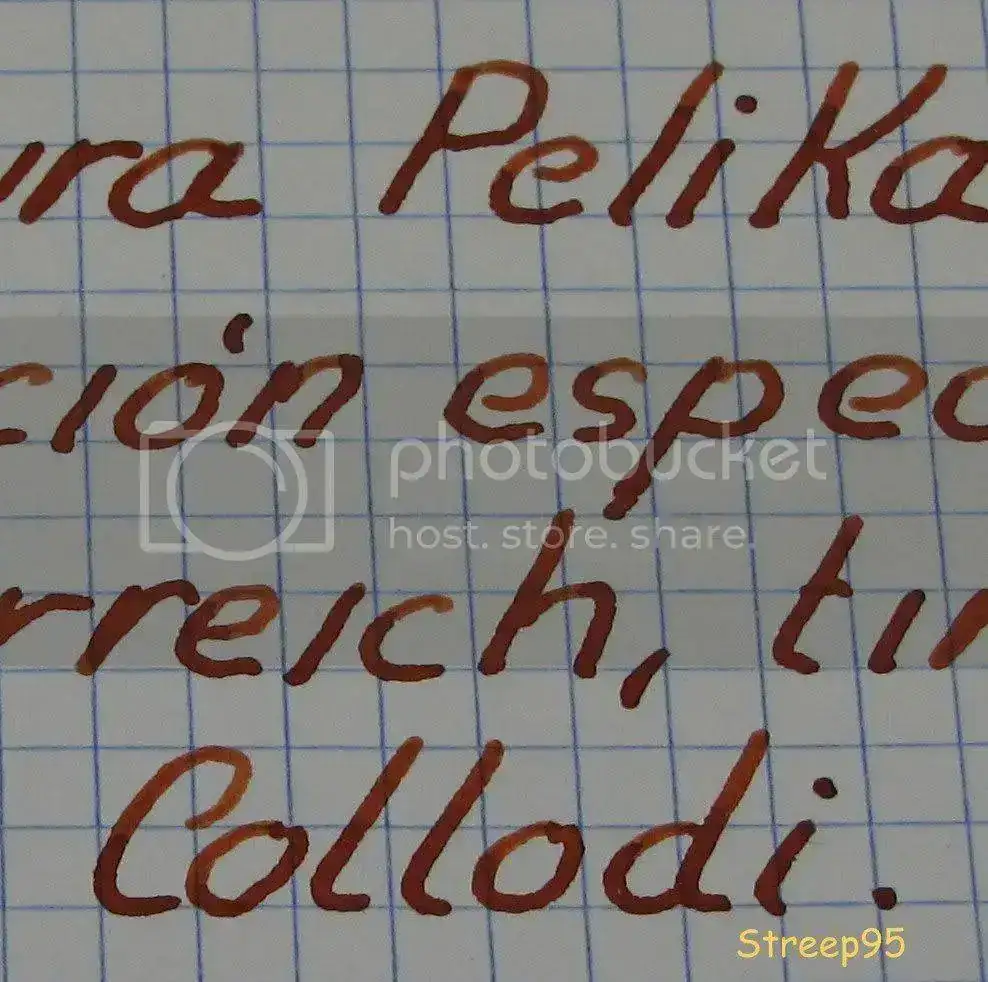 ura PeliKa
ción espec
rreich, tin
Collodi.
photobucket
host. store. share.
Streep95